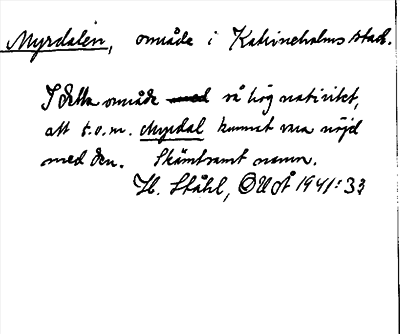 Myrdalen, område i Katrineholms stad.
I detta område med så hög nativitet,
att t.o.m. Myrdal kunnat vara nöjd
med den. Skämtsamt namn.
H. Ståhl, ÖUOÅ 1941:33